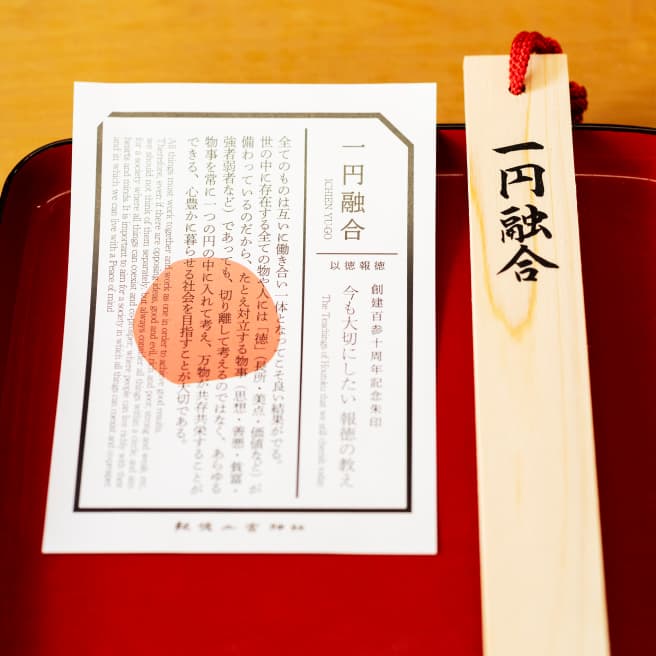 一円融合
ICHEN YUGO
以徳報徳
創建百参十周年記念朱印
今も大切にしたい 報徳の教え
The Teachings of Houtoku that we still cherish today
全てのものは互いに働き合い一体となってこそ良い結果がでる。
世の中に存在する全ての物や人には「徳」(長所・美点・価値など)が
備わっているのだから、たとえ対立する物事(思想・善悪・貧富・
強者弱者など)であっても、切り離して考えるのではなく、あらゆる
物事を常に一つの円の中に入れて考え、万物が共存共栄することが
できる、心豊かに暮らせる社会を目指すことが大切である。
All things must work together and work as one in order to achieve good results.
Therefore, even if there are opposing ideas, good and evil, rich and poor, strong and weak, etc.
we should not think of them separately, but always consider all things within a circle, and aim
for a society where all things can coexist and co-prosper, where people can live richly with their
hearts and minds. It is important to aim for a society in which all things can coexist and co-prosper
and in which we can live with a Peace of mind
報徳二宮神社
一円融合